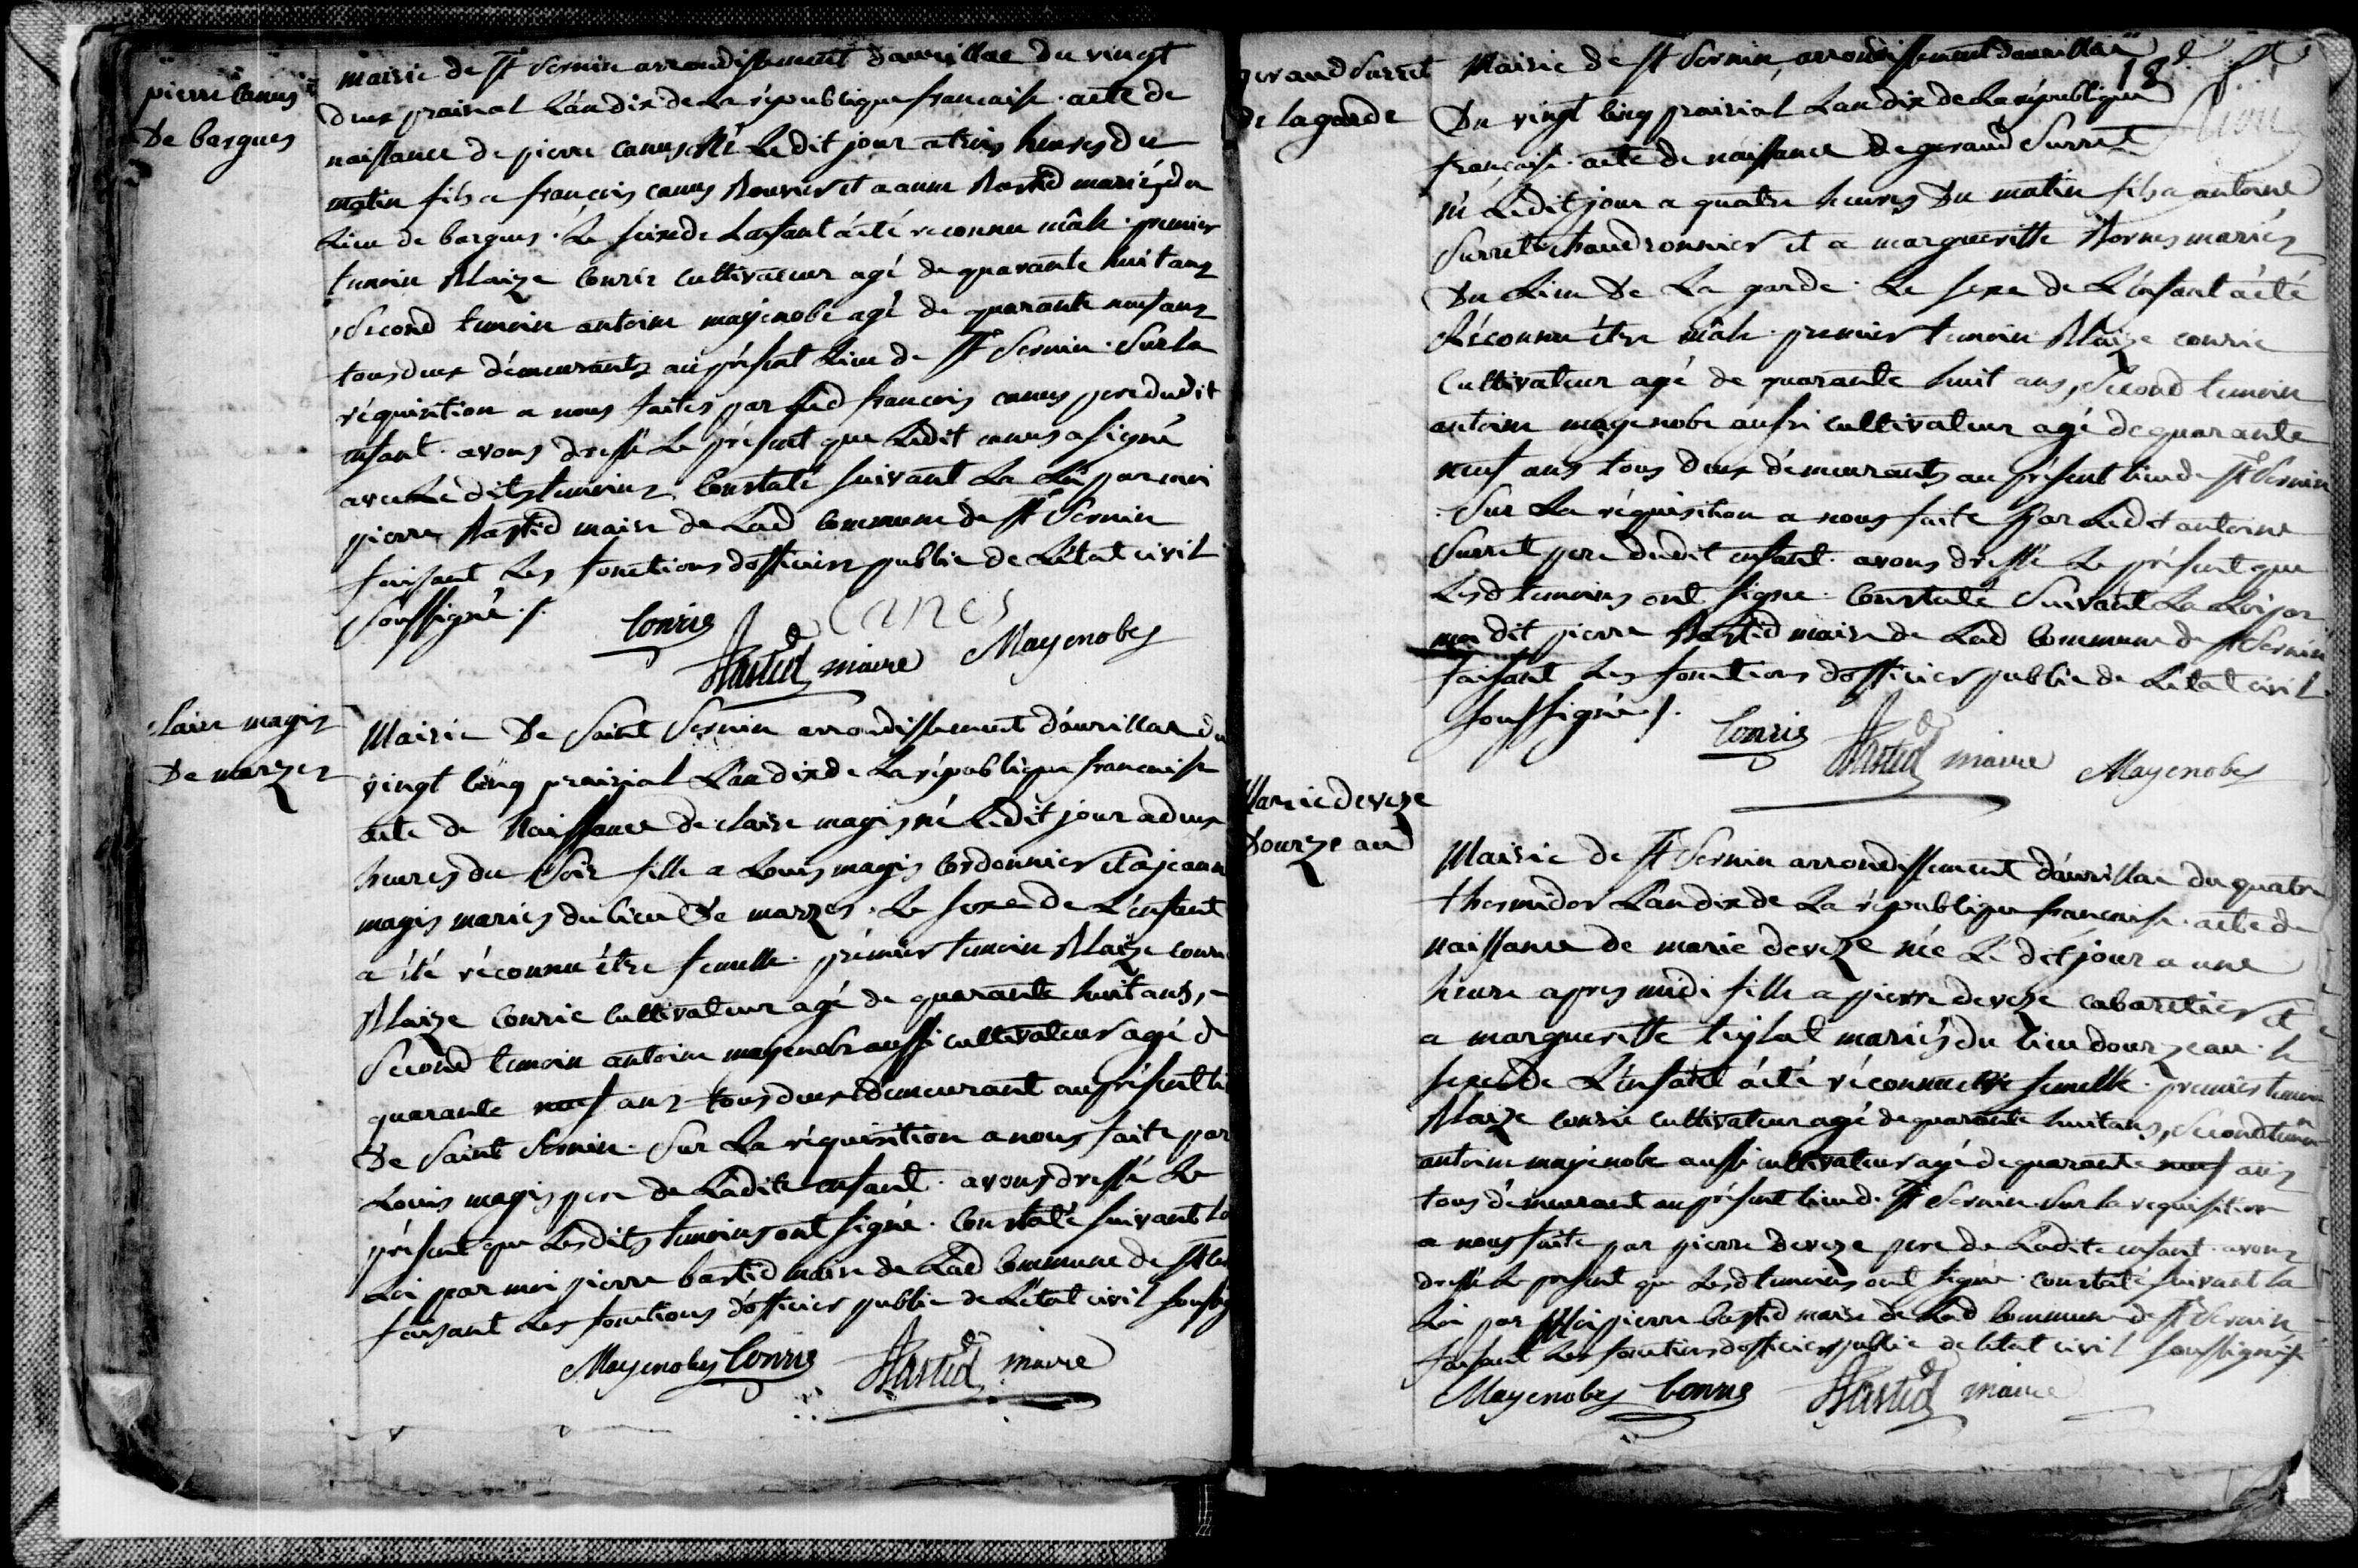 pierre canus
De bargues
mairie de St Sernin arrondissement daurillac du vingt
deux prairial L'an dix de La république francaise. acte de
naissance de pierre canus né Ledit jour a trois heures du
matin fils a françois canus Bouvier et a anne Bastid mariés du
Lieu de bargues. Le sexe de L'enfant a été reconnu mâle. premier
temoin Blaize Courie cultivateur agé de quarante huit ans
, Second temoin antoine mayenobe agé de quarante neuf ans
tous deux démeurants au présent Lieu de St Sernin. Sur La
réquisition a nous faites par Led françois canus pere dudit
enfant. avons dressé Le présent que Ledit canus a signé
avec Le dits temoins. Constaté suivant La Loi par moi
pierre Bastid maire de Lad Commune de St Sernin
faisant Les fonctions d'officier public de L'état civil
Soussigné ./.
Courie Canes
Bastid maire Mayenobes
claire magis
De marzes
Mairie De Saint Sernin arrondissement d'aurillac du
vingt cinq prairial L'an dix de La république francaise
acte de Naissance de claire magis né Ledit jour a deux
heures du Soir fille a Louis magis Cordonnier et a jeanne
magis mariés du lieu De marzes. Le sexe de L'enfant
a été réconnu être femelle. prémier temoin Blaize courie
Blaize Courie Cultivateur agé de quarante huit ans,
Second temoin antoine mayenobe aussi cultivateur agé de
quarante neuf ans tous deux démeurant au présent li
De Saint Sernin. Sur La réquisition a nous faite par
Louis magis pere de Ladite enfant. avons dressé Le
présent que Lesdits temoins ont signé. Constaté suivant La
Loi par moi pierre bastid maire de Lad Commune de St
faisant Les fonctions d'officier public de L'état civil soussig
Mayenobes Courie Bastid maire
18e
gerand Surret
De lagarde
Mairie de St Sernin, arrondissement daurillac
Du vingt cinq prairial L'an dix de La république
francaise. acte de naissance de gerand Surret
né Ledit jour a quatre heures Du matin fils a antoine
Surret chaudronnier et a margueritte Bornes mariés
Du Lieu De La garde. Le sexe de L'enfant a été
Réconnu être mâle. premier temoin Blaize courie
Cultivateur agé de quarante huit ans, Second temoin
antoine mayenobe aussi cultivateur agé de quarante
neuf ans tous deux démeurants au présent lieu de St Sernin
. Sur La réquisition a nous faite par Ledit antoine
Surret pere dudit enfant. avons dressé Le présent que
Lesd temoins ont signé. Constaté Suivant La Loi par
moi dit pierre Bastid maire de Lad Commune de St Sernin
faisant Les fonctions d'officier public de L'état civil
soussigné ./.
Courie Bastid maire Mayenobes
Marie deveze
Dourzeaud
Mairie de St Sernin arrondissement d'aurillac du quatre
thermidor L'an dix de La république francaise. acte de
naissance de marie deveze née Le dit jour a une
heure apres midi fille a pierre deveze cabaretier et
a margueritte teylat mariés du lieu dourzeau. Le
sexe de L'enfant a été réconnu être femelle. premier temoin
Blaize courie cultivateur agé de quarante huit ans, Second temoin
antoine mayenobe aussi cultivateur agé de quarante neuf ans
tous démeurant au présent lieu de St Sernin. Sur La requisition
a nous faite par pierre Deveze pere de Ladite enfant. avons
dressé le présent que Lesd temoins ont signé. constaté suivant La
Loi par Moi pierre bastid maire de Lad Commune de St Sernin
faisant Les fonctions d'officier public de L'état civil soussigné
Mayenobes Courie Bastid maire